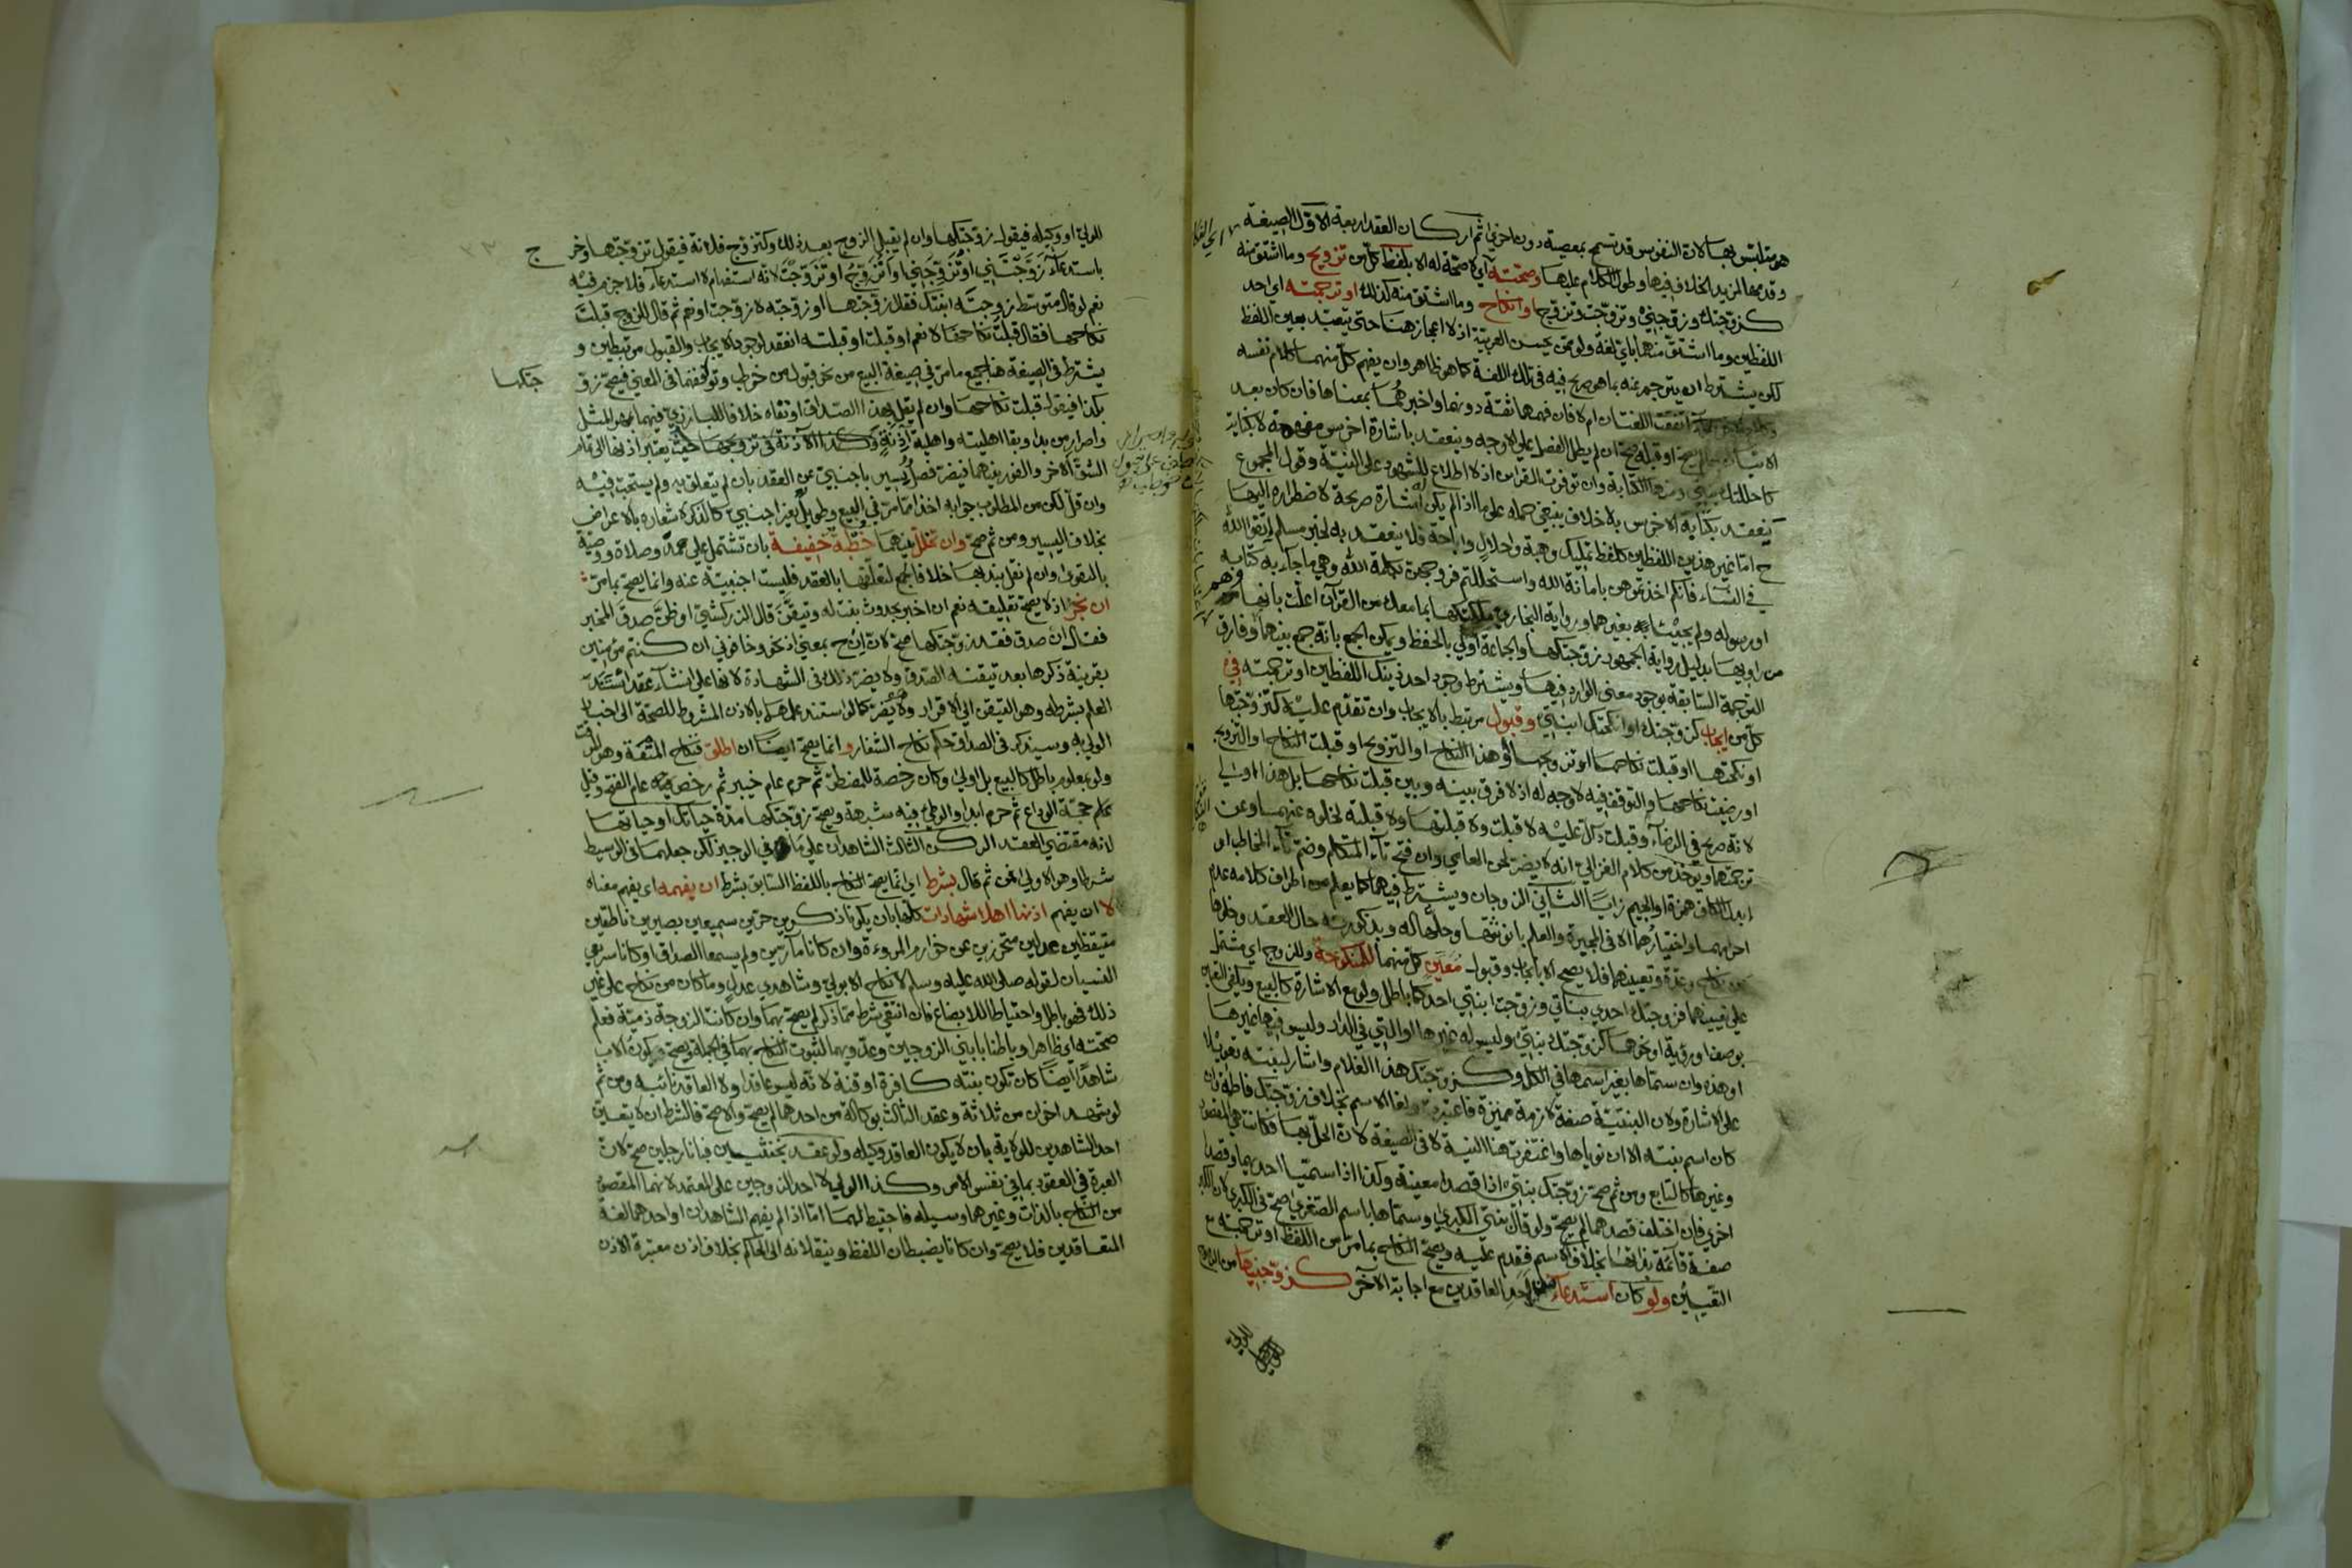 هو متلبس بها لان النفوس قد تسمح بمعصية دون اخرى ثم اركان العقد اربعة الاول الصيغة
وقدمها لمزيد الخلاف فيها وطول الكلام عليها وصحته أي لا صحة له الا بلفظ كل من تزويج وما اشتق منه
كزوجتك وزوجني وتزوجت وتزوجها وانكاح وما اشتق منه كذلك او ترجمته اي احد
اللفظين وما اشتق منهما باي لغة ولو ممن يحسن العربية اذ لا اعجاز هنا حتى يتعبد بعين اللفظ
لكن يشترط ان يترجم عنه بما هو صريح فيه في تلك اللغة كما هو ظاهر وان يفهم كل منهما كلام نفسه
اتفقت اللغتان ام لا فان فهمها ثقة دونهما واخبرهما بمعناها فان كان بعد
او قبله صح ان لم يطل الفصل على الاوجه وينعقد باشارة اخرس مفهمة لا بكناية
كاحللتك بنتي ومنها الكتابة وان توفرت القرائن اذ لا اطلاع للشهود على النية وقول المجموع
ينعقد بكتابة الاخرس بلا خلاف ينبغي حمله على ما اذا لم يكن له اشارة صريحة لاضطراره اليها
ح اما غير هذين اللفظين كلفظ تمليك وهبة واحلال واباحة فلا ينعقد به لخبر مسلم اتقوا الله
في النساء فانكم اخذتموهن بامانة الله واستحللتم فروجهن بكلمة الله وهي ما جاء به كتابه
او رسوله ولم يجيئا فيه بغيرهما ورواية البخاري ملكتكها بما معك من القرآن اعلت بانها وهم
من راويها بدليل رواية الجمهور زوجتكها والجماعة اولى بالحفظ ويمكن الجمع بانه جمع بينهما وفارق
الترجمة السابقة بوجود معنى الوارد فيها ويشترط وجود احد ذينك اللفظين او ترجمته في
كل من ايجاب كزوجتك او انكحتك ابنتي وقبول مرتبط بالايجاب وان تقدم عليه كتزوجتها
او نكحتها او قبلت نكاحها او تزويجها او هذا النكاح او التزويج او قبلت النكاح او التزويج
او رضيت نكاحها والتوقف فيه لا وجه له اذ لا فرق بينه وبين قبلت نكاحها بل هذا اولى
لانه صريح في الرضاء وقبلت دال عليه لا قبلت ولا قبلتها ولا قبلته لخلوه عنهما وعن
ترجمتهما ويؤخذ من كلام الغزالي انه لا يضر لحن العامي وان فتح تاء المتكلم وضم تاء المخاطب او
ابدل الكاف همزة او الجيم زايا الثاني الزوجان ويشترط فيهما كما يعلم من اطراف كلامه عدم
احرامهما واختيارهما الا في المجبرة والعلم بانوثتها وحلها له وبذكورته حال العقد وخلوها
من نكاح وعدة وتعيينهما فلا يصح الا بايجاب وقبول معين كل منهما للمنكوحة وللزوج اي مشتمل
على تعيينهما فزوجتك احدى بناتي وزوجت ابنتي احدكما باطل ولو مع الاشارة كالبيع ويكفي التعيين
بوصف او رؤية او نحوهما كزوجتك بنتي وليس له غيرها او التي في الدار وليس فيها غيرها
او هذه وان سماها بغير اسمها في الكل وكزوجتك هذا الغلام واشار لبنته تعويلا
على الاشارة ولان البنتية صفة لازمة مميزة فاعتبرت ولغا الاسم بخلاف زوجتك فاطمة وان
كان اسم بنته الا ان نوياها واغتفرت هنا النية لا في الصيغة لان الحل بها فكانت هي المقصود
وغيرها كالتابع ومن ثم صح زوجتك بنتي اذا قصدا معينة وكذا اذا سميا احديهما وقصدا
اخرى فان اختلف قصدهما لم يصح ولو قال بنتي الكبرى وسماها باسم الصغرى صح في الكبرى لان الكبر
صفة قائمة بذاتها بخلاف الاسم فقدم عليه ويصح النكاح بما مر من اللفظ او ترجمته مع
التعيين ولو كان استدعاء من احد العاقدين مع اجابة الآخر كزوجنيها من الزوج
للولي او وكيله فيقول زوجتكها وان لم يقبل الزوج بعد ذلك وكتزوج فلانة فيقول تزوجتها وخرج
باستدعاء زوجتني او تزوجني او اتزوج او تزوجت لانه استفهام لا استدعاء فلا جزم فيه
نعم لو قال متوسط زوجته ابنتك فقال زوجتها او زوجته لا زوجت او نعم ثم قال للزوج قبلت
نكاحها فقال قبلت نكاحها لا نعم او قبلت او قبلته انعقد لوجود الايجاب والقبول مرتبطين و
يشترط في الصيغة هنا جميع ما مر في صيغة البيع من نحو قبول من خوطب وتوافقهما في المعنى فيصح زو
جتكها
بكذا فيقول قبلت نكاحها وان لم يقل بهذا الصداق او نفاه خلافا للبارزي فيهما بمهر المثل
واصرار من بدا وبقا اهليته واهلية آذنة وكذا الآذنة في تزويجها حيث يعتبر اذنها الى تمام
الشق الآخر والفور بينهما فيضر فصل يسير باجنبي عن العقد بان لم يتعلق به ولم يستحب فيه
وان قل لكن من المطلوب جوابه اخذا مما مر في البيع وطويل بغير اجنبي كالذكر لاشعاره بالاعراض
بخلاف اليسير ومن ثم صح وان تخلل بينهما خطبة خفيفة بان تشتمل على حمد وصلاة ووصية
بالتقوى وان لم نقل بندبها خلافا لجمع لتعلقها بالعقد فليست اجنبية عنه وانما يصح بما مر
ان نجز اذ لا يصح تعليقه نعم ان اخبر بحدوث بنت له وتيقن قال الزركشي او ظن صدق المخبر
فقال ان صدق فقد زوجتكها صح لان ان ح بمعنى اذ نحو وخافوني ان كنتم مؤمنين
بقرينة ذكرها بعد تيقنه الصدق ولا يضر ذلك في الشهادة لانها على انشاء عقد استند
العلم بشرطه وهو التيقن الى الاقرار ولا يضر كما لو استند علمها بالاذن المشروط للصحة الى اخبار
الولي به وسيذكر في الصداق حكم نكاح الشغار وانما يصح ايضا ان اطلق فنكاح المتعة وهو المؤقت
ولو بمعلوم باطل كالبيع بل اولى وكان رخصة للمضطر ثم حرم عام خيبر ثم رخص فيه عام الفتح وقبل
عام حجة الوداع ثم حرم ابدا والوطئ فيه شبهة ويصح زوجتكها مدة حياتك او حياتها
لانه مقتضى العقد الركن الثالث الشاهدان على ما في الوجيز لكن جعلهما في الوسيط
شرطا وهو الاولى ثم قال بشرط اي انما يصح النكاح باللفظ السابق بشرط ان يفهمه اي يفهم معناه
لا ان يفهم اذنها اهلا شهادات كلها بان يكونا ذكرين حرين سميعين بصيرين ناطقين
متيقظين عدلين متحرزين عن خوارم المروءة وان كانا مآرتين ولم يسمعا الصداق او كانا سريعي
النسيان لقوله صلى الله عليه وسلم لا نكاح الا بولي وشاهدي عدل وما كان من نكاح على غير
ذلك فهو باطل واحتياطا للابضاع فان انتفى شرط مما ذكر لم يصح بهما وان كانت الزوجة ذمية فعلم
صحته اي ظاهرا وباطنا بابني الزوجين وعدويهما لثبوت النكاح بهما في الجملة ويصح كون الاب
شاهدا ايضا كان تكون بنته كافرة او قنة لانه ليس عاقدا ولا العاقد نائبه ومن ثم
لو شهد اخوان من ثلاثة وعقد الثالث بوكالة من احدهما لم يصح والا صح فالشرط ان لا يتعين
احد الشاهدين للولاية بان لا يكون العاقد وكيله ولو عقد بخنثيين فبانا رجلين صح لان
العبرة في العقود بما في نفس الامر وكذا الولي لا احد الزوجين على المعتمد لانهما المقصود
من النكاح بالذات وغيرهما وسيلة فاحتيط لهما اما اذا لم يفهم الشاهدان او احدهما لغة
المتعاقدين فلا يصح وان كانا يضبطان اللفظ وينقلانه الى الحاكم بخلاف اذن معتبرة الاذن